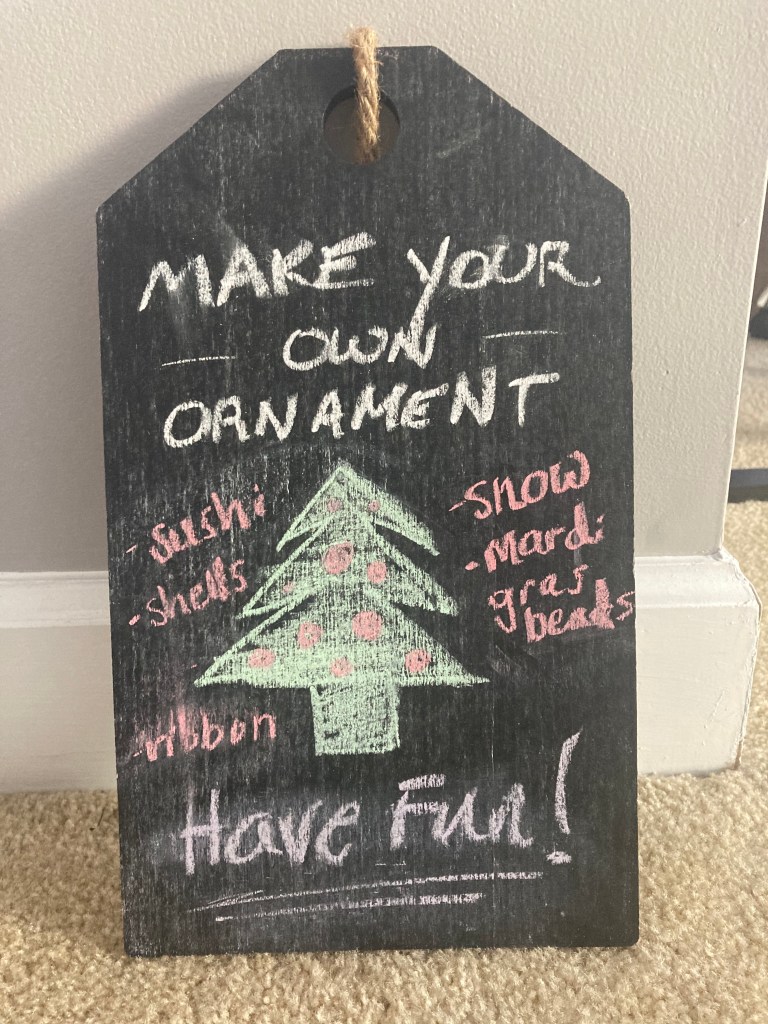 MAKE YOUR
— OWN —
ORNAMENT
- sushi
- shells
- ribbon
- snow
- mardi
gras
beads
Have Fun!